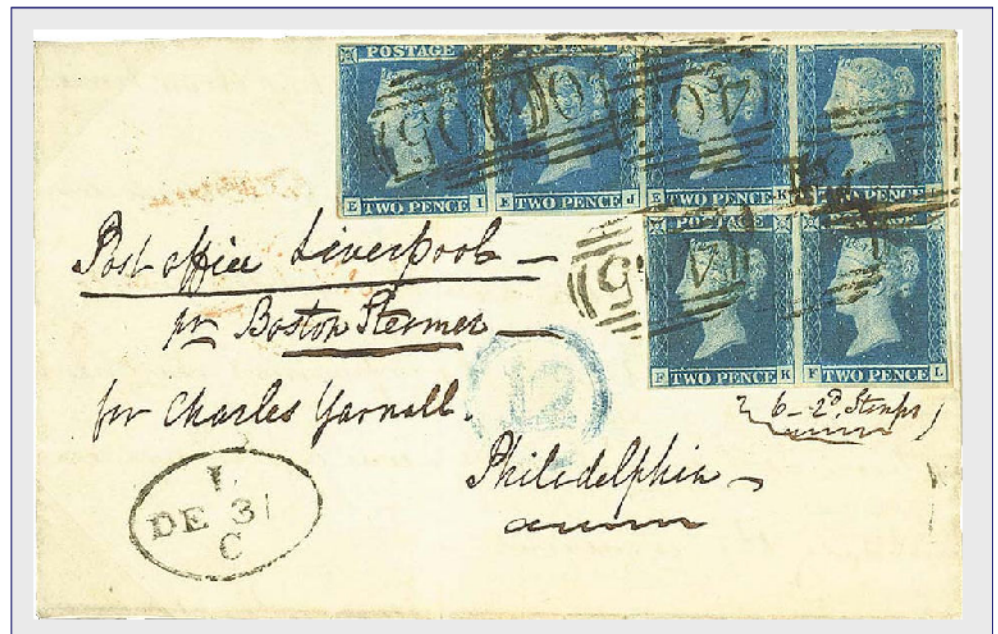 POSTAGE
405 405 405
E TWO PENCE I E TWO PENCE J E TWO PENCE K TWO PENCE L
POSTAGE
405
F TWO PENCE K F TWO PENCE L
6 - 2D. Stamps
Post office Liverpool -
pr Boston Steamer
for Charles Yarnall.
12
Philadelphia -
L
DE 31
C